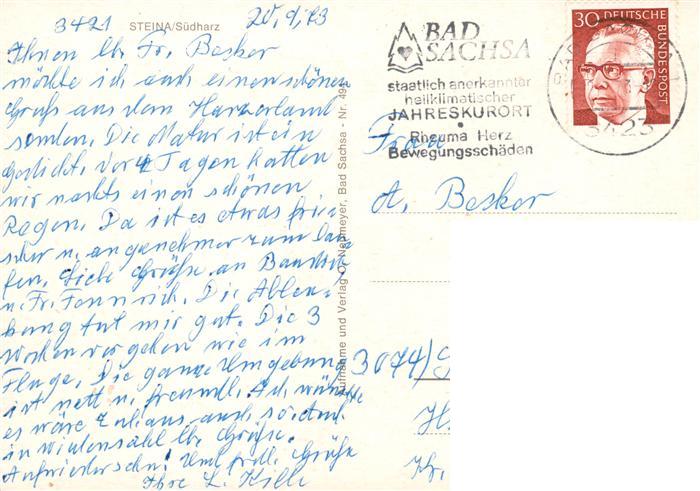 3421 STEINA/Südharz 20,9,73
Ihnen lb. Fr. Besker
möchte ich auch einen schönen
Gruß aus dem Harzerland
senden. Die Natur ist ein
Gedicht. Vor 4 Tagen hatten
wir nachts einen schönen
Regen. Da ist es etwas frie
scher u. angenehmer zum lau
fen. Liebe Grüße an
u. Fr. Die Ablen-
kung tut mir gut. Die 3
Wochen vergehen wie im
Fluge. Die ganze Umgebung
ist nett u. freundl. Ich wünschte
es wäre zuhaus auch so.
in lb. Grüße.
Aufwiedersehn! Und frdl. Grüße
Ihre L.
Aufnahme und Verlag O. Neumeyer, Bad Sachsa - Nr. 495
BAD
SACHSA
staatlich anerkannter
heilklimatischer
JAHRESKURORT
Rheuma Herz
Bewegungsschäden
30 DEUTSCHE
BUNDESPOST
3423
Frau
A. Besker
3074)
H
Kr.